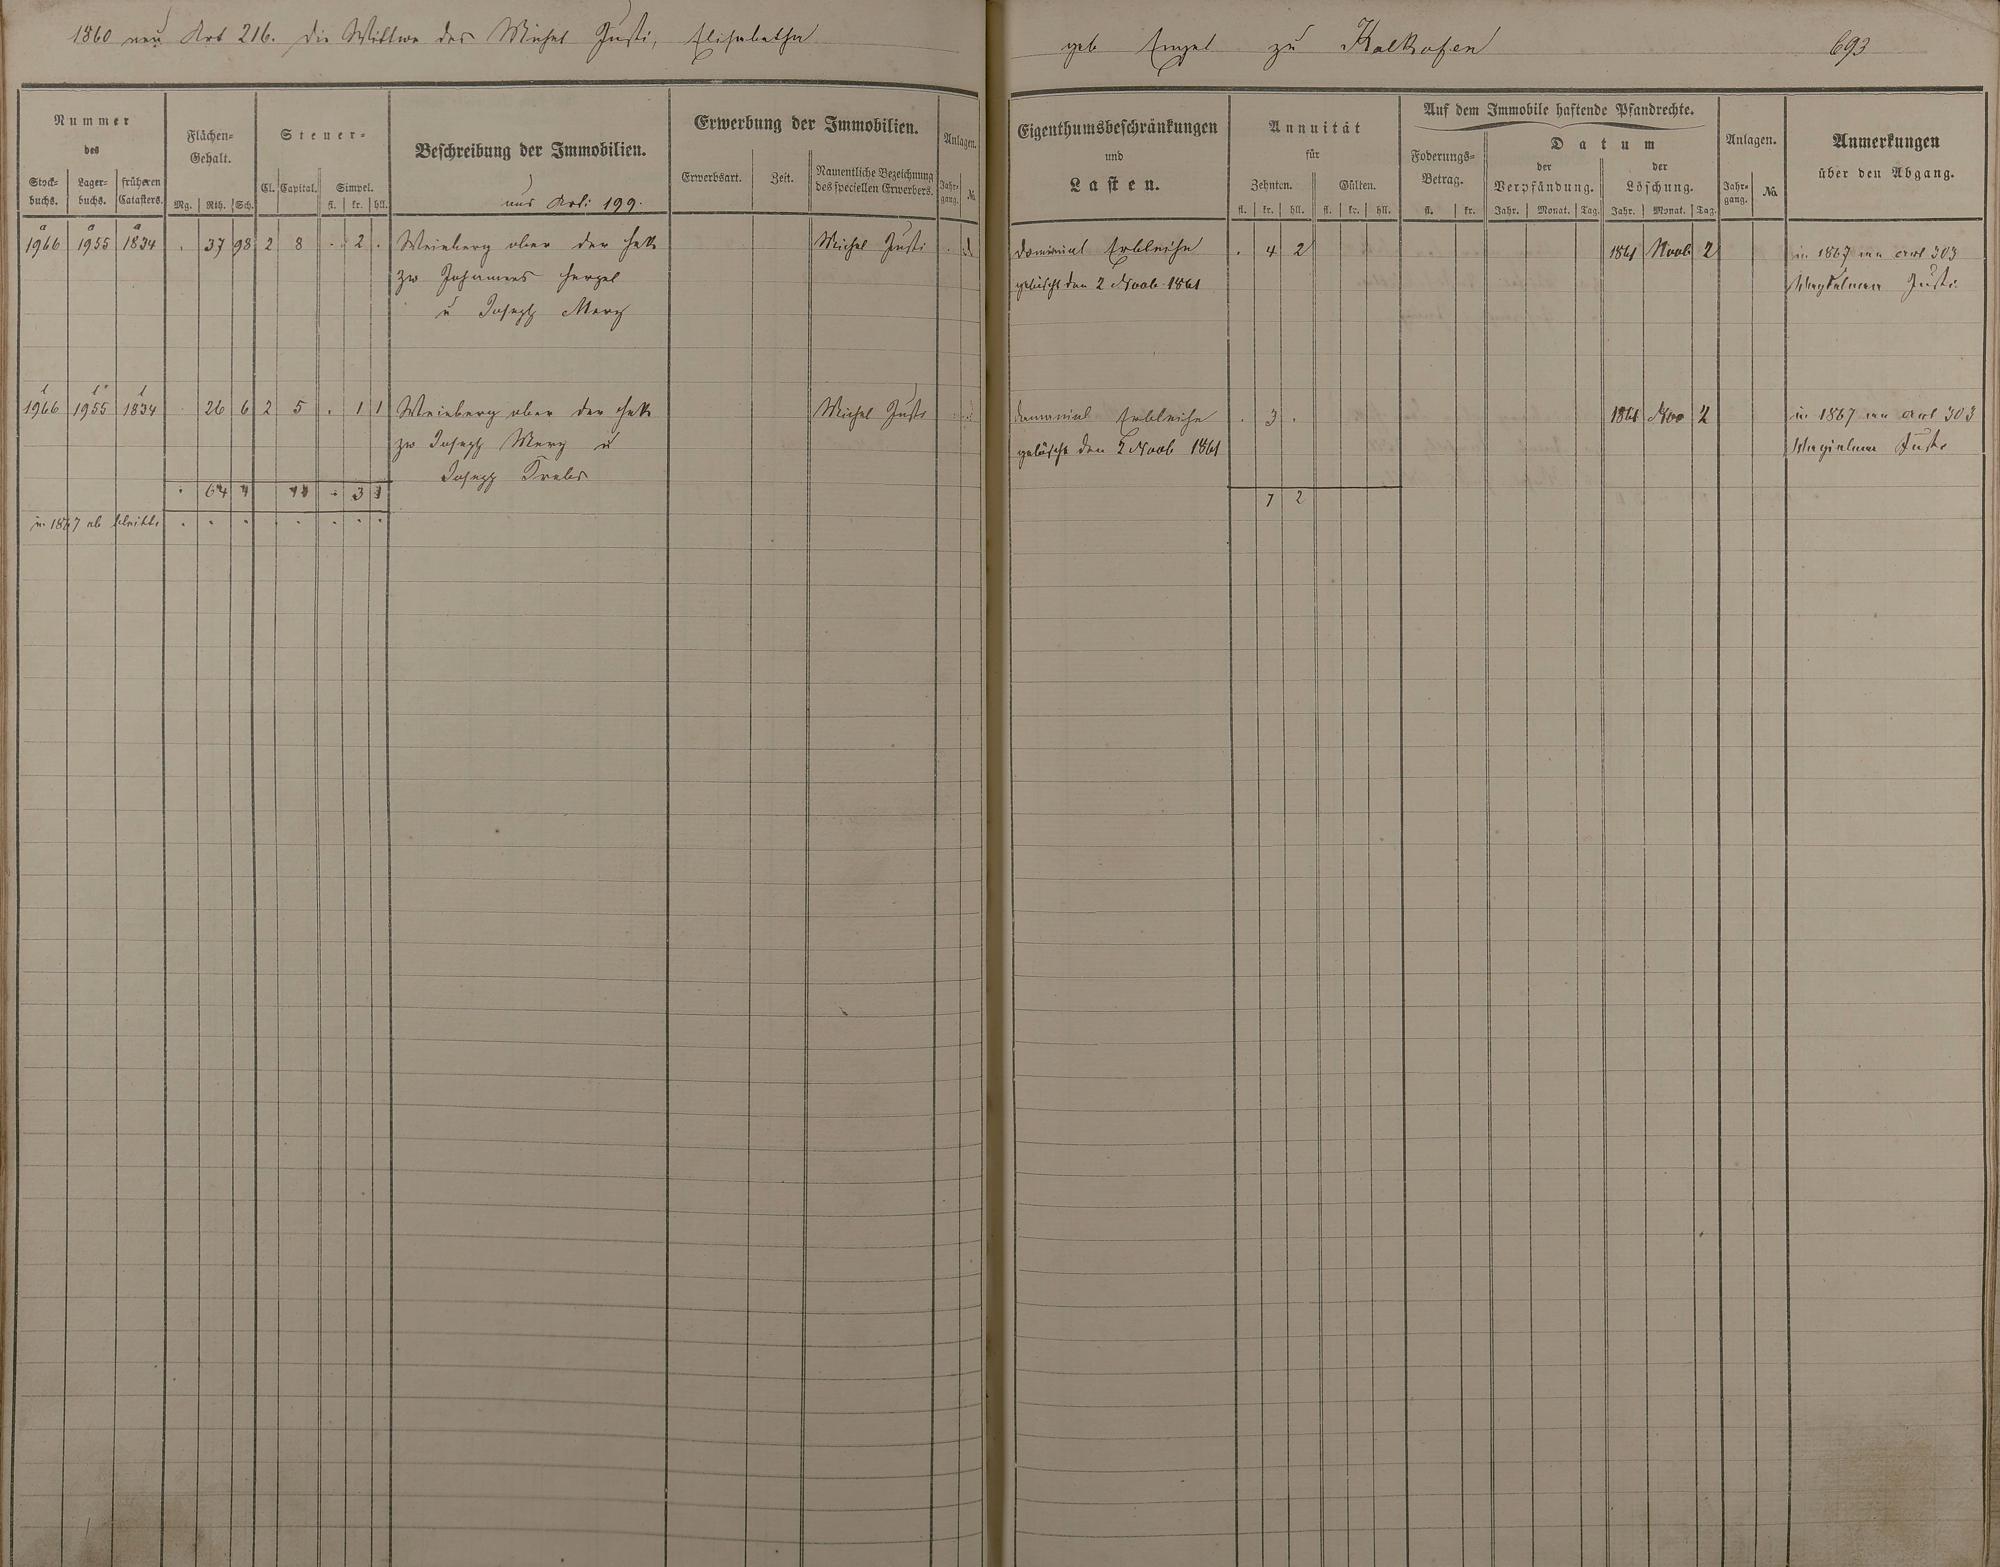 1860 neu Art 216. die Wittwe des Michel Justi, Elisabetha geb Engel zu Kalkofen 693
Nummer
des
Stock-
buchs. Lager-
buchs. früheren
Catasters.
Flächen-
Gehalt.
Mg. Rth. Sch.
Steuer-
Cl. Capital. Simpel.
fl. kr. hll.
Beschreibung der Immobilien.
aus Arti 199.
Erwerbung der Immobilien.
Erwerbsart. Zeit. Namentliche Bezeichnung
des speciellen Erwerbers.
Anlagen.
Jahr-
gang. No.
Eigenthumsbeschränkungen
und
Lasten.
Annuität
für
Zehnten. Gülten.
fl. kr. hll. fl. kr. hll.
Auf dem Immobile haftende Pfandrechte.
Foderungs-
Betrag.
fl. kr.
Datum
der
Verpfändung.
Jahr. Monat. Tag.
der
Löschung.
Jahr. Monat. Tag.
Anlagen.
Jahr-
gang. No.
Anmerkungen
über den Abgang.
a a a
1966 1955 1834 . 37 98 2 8 . 2 . Weinberg ober der Michel Justi . 4 2 1861 Novb 2 in 1867 an Art 303
zw Johannes Hergel
u Joseph Merz
domanial Erbleihe
gelöscht den 2 Novb 1861
Justi
1966 1955 1834 . 26 6 2 5 . 1 1 Weinberg ober der Michel Justi . 3 . 1861 Nov 2 in 1867 an Art 303
zw Joseph Merz u
Joseph Krebs
domanial Erbleihe
gelöscht den 2 Novb 1861
Justi
. 64 4 . 3 1 7 2
in 1867 ab